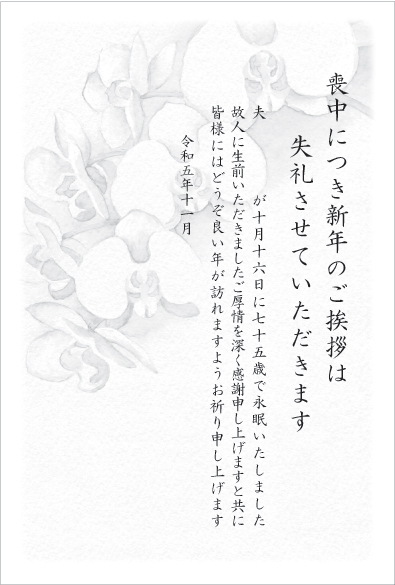 喪中につき新年のご挨拶は
失礼させていただきます
夫　　　が十月十六日に七十五歳で永眠いたしました
故人に生前いただきましたご厚情を深く感謝申し上げますと共に
皆様にはどうぞ良い年が訪れますようお祈り申し上げます
令和五年十一月